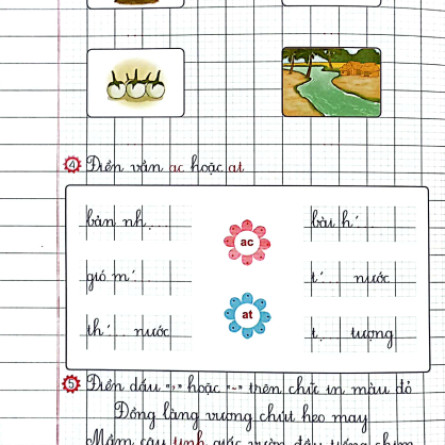 4 Điền vần ac hoặc at
bản nh... bài h...́
ac
gió m...́ t...́ nước
at
th...́ nước t... tượng
5 Điền dấu hoặc trên chữ in màu đỏ
Đồng làng vương chút heo may
Mầm cây tinh giấc vườn đầy tiếng chim